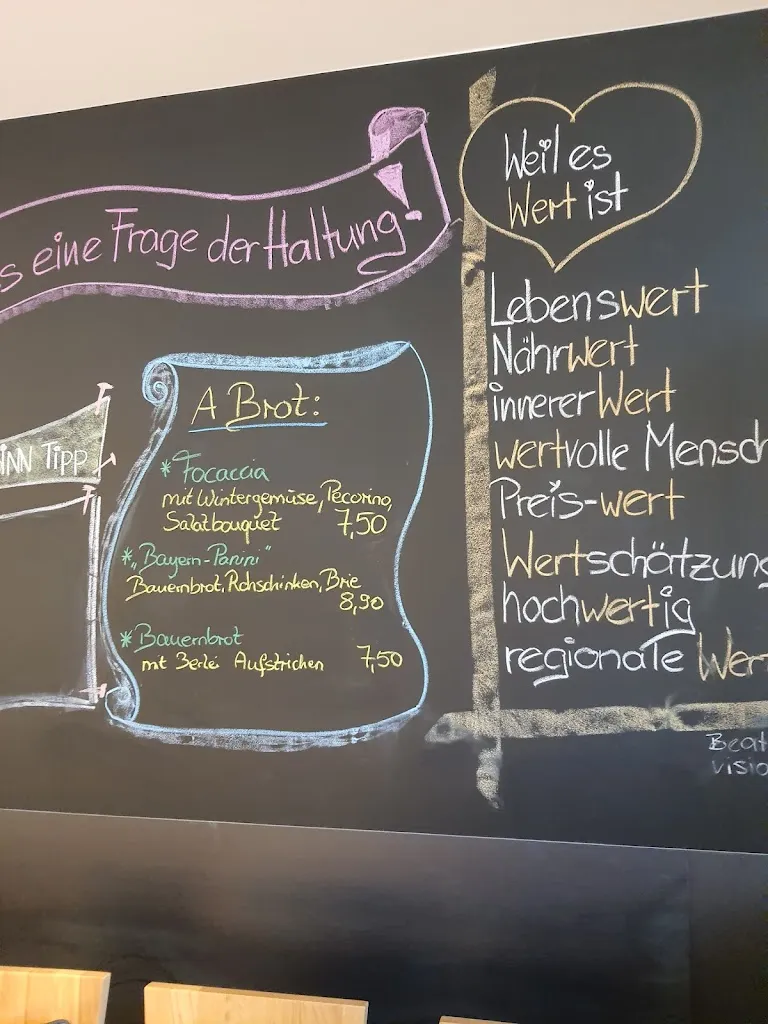 s eine Frage der Haltung!
INN TIPP
A Brot:
* Focaccia
mit Wintergemüse, Pecorino,
Salatbouquet 7,50
* „Bayern-Panini"
Bauernbrot, Rohschinken, Brie
8,90
* Bauernbrot
mit 3erlei Aufstrichen 7,50
Weil es
Wert ist
Lebenswert
Nährwert
innerer Wert
wertvolle Mensch
Preis-wert
Wertschätzung
hochwertig
regionale Wer
Beat
visio